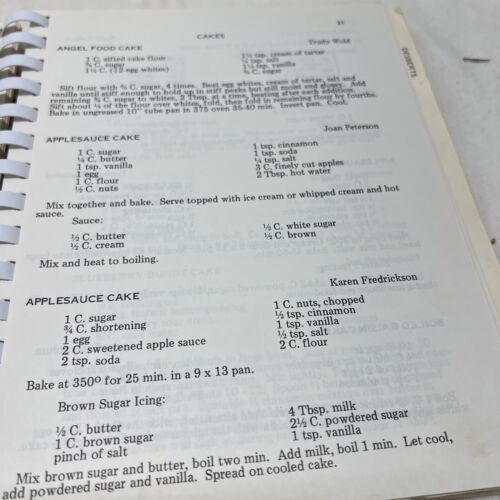 CAKES
31
ANGEL FOOD CAKE
Trudy Wold
1 C. sifted cake flour
¾ C. sugar
1½ C. (12 egg whites)
1½ tsp. cream of tartar
¼ tsp. salt
1½ tsp. vanilla
¾ C. sugar
Sift flour with ¾ C. sugar, 4 times. Beat egg whites, cream of tartar, salt and
vanilla until stiff enough to hold up in stiff peaks but still moist and glossy. Add
remaining ¾ C. sugar to whites, 2 Tbsp. at a time, beating after each addition.
Sift about ¼ of the flour over whites, fold, then fold in remaining flour by fourths.
Bake in ungreased 10" tube pan in 375 oven 35-40 min. Invert pan. Cool.
APPLESAUCE CAKE
Joan Peterson
1 C. sugar
¼ C. butter
1 tsp. vanilla
1 egg
1 C. flour
½ C. nuts
1 tsp. cinnamon
1 tsp. soda
¼ tsp. salt
3 C. finely cut apples
2 Tbsp. hot water
Mix together and bake. Serve topped with ice cream or whipped cream and hot
sauce.
Sauce:
½ C. butter
½ C. cream
½ C. white sugar
½ C. brown
Mix and heat to boiling.
APPLESAUCE CAKE
Karen Fredrickson
1 C. sugar
¾ C. shortening
1 egg
2 C. sweetened apple sauce
2 tsp. soda
1 C. nuts, chopped
½ tsp. cinnamon
1 tsp. vanilla
½ tsp. salt
2 C. flour
Bake at 350º for 25 min. in a 9 x 13 pan.
Brown Sugar Icing:
½ C. butter
1 C. brown sugar
pinch of salt
4 Tbsp. milk
2½ C. powdered sugar
1 tsp. vanilla
Mix brown sugar and butter, boil two min. Add milk, boil 1 min. Let cool,
add powdered sugar and vanilla. Spread on cooled cake.
DESSERTS